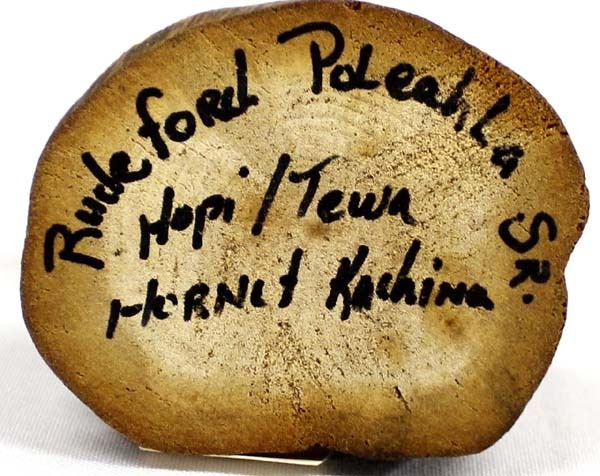 Rudeford Poleahla SR.
Hopi/Tewa
HORNet Kachina